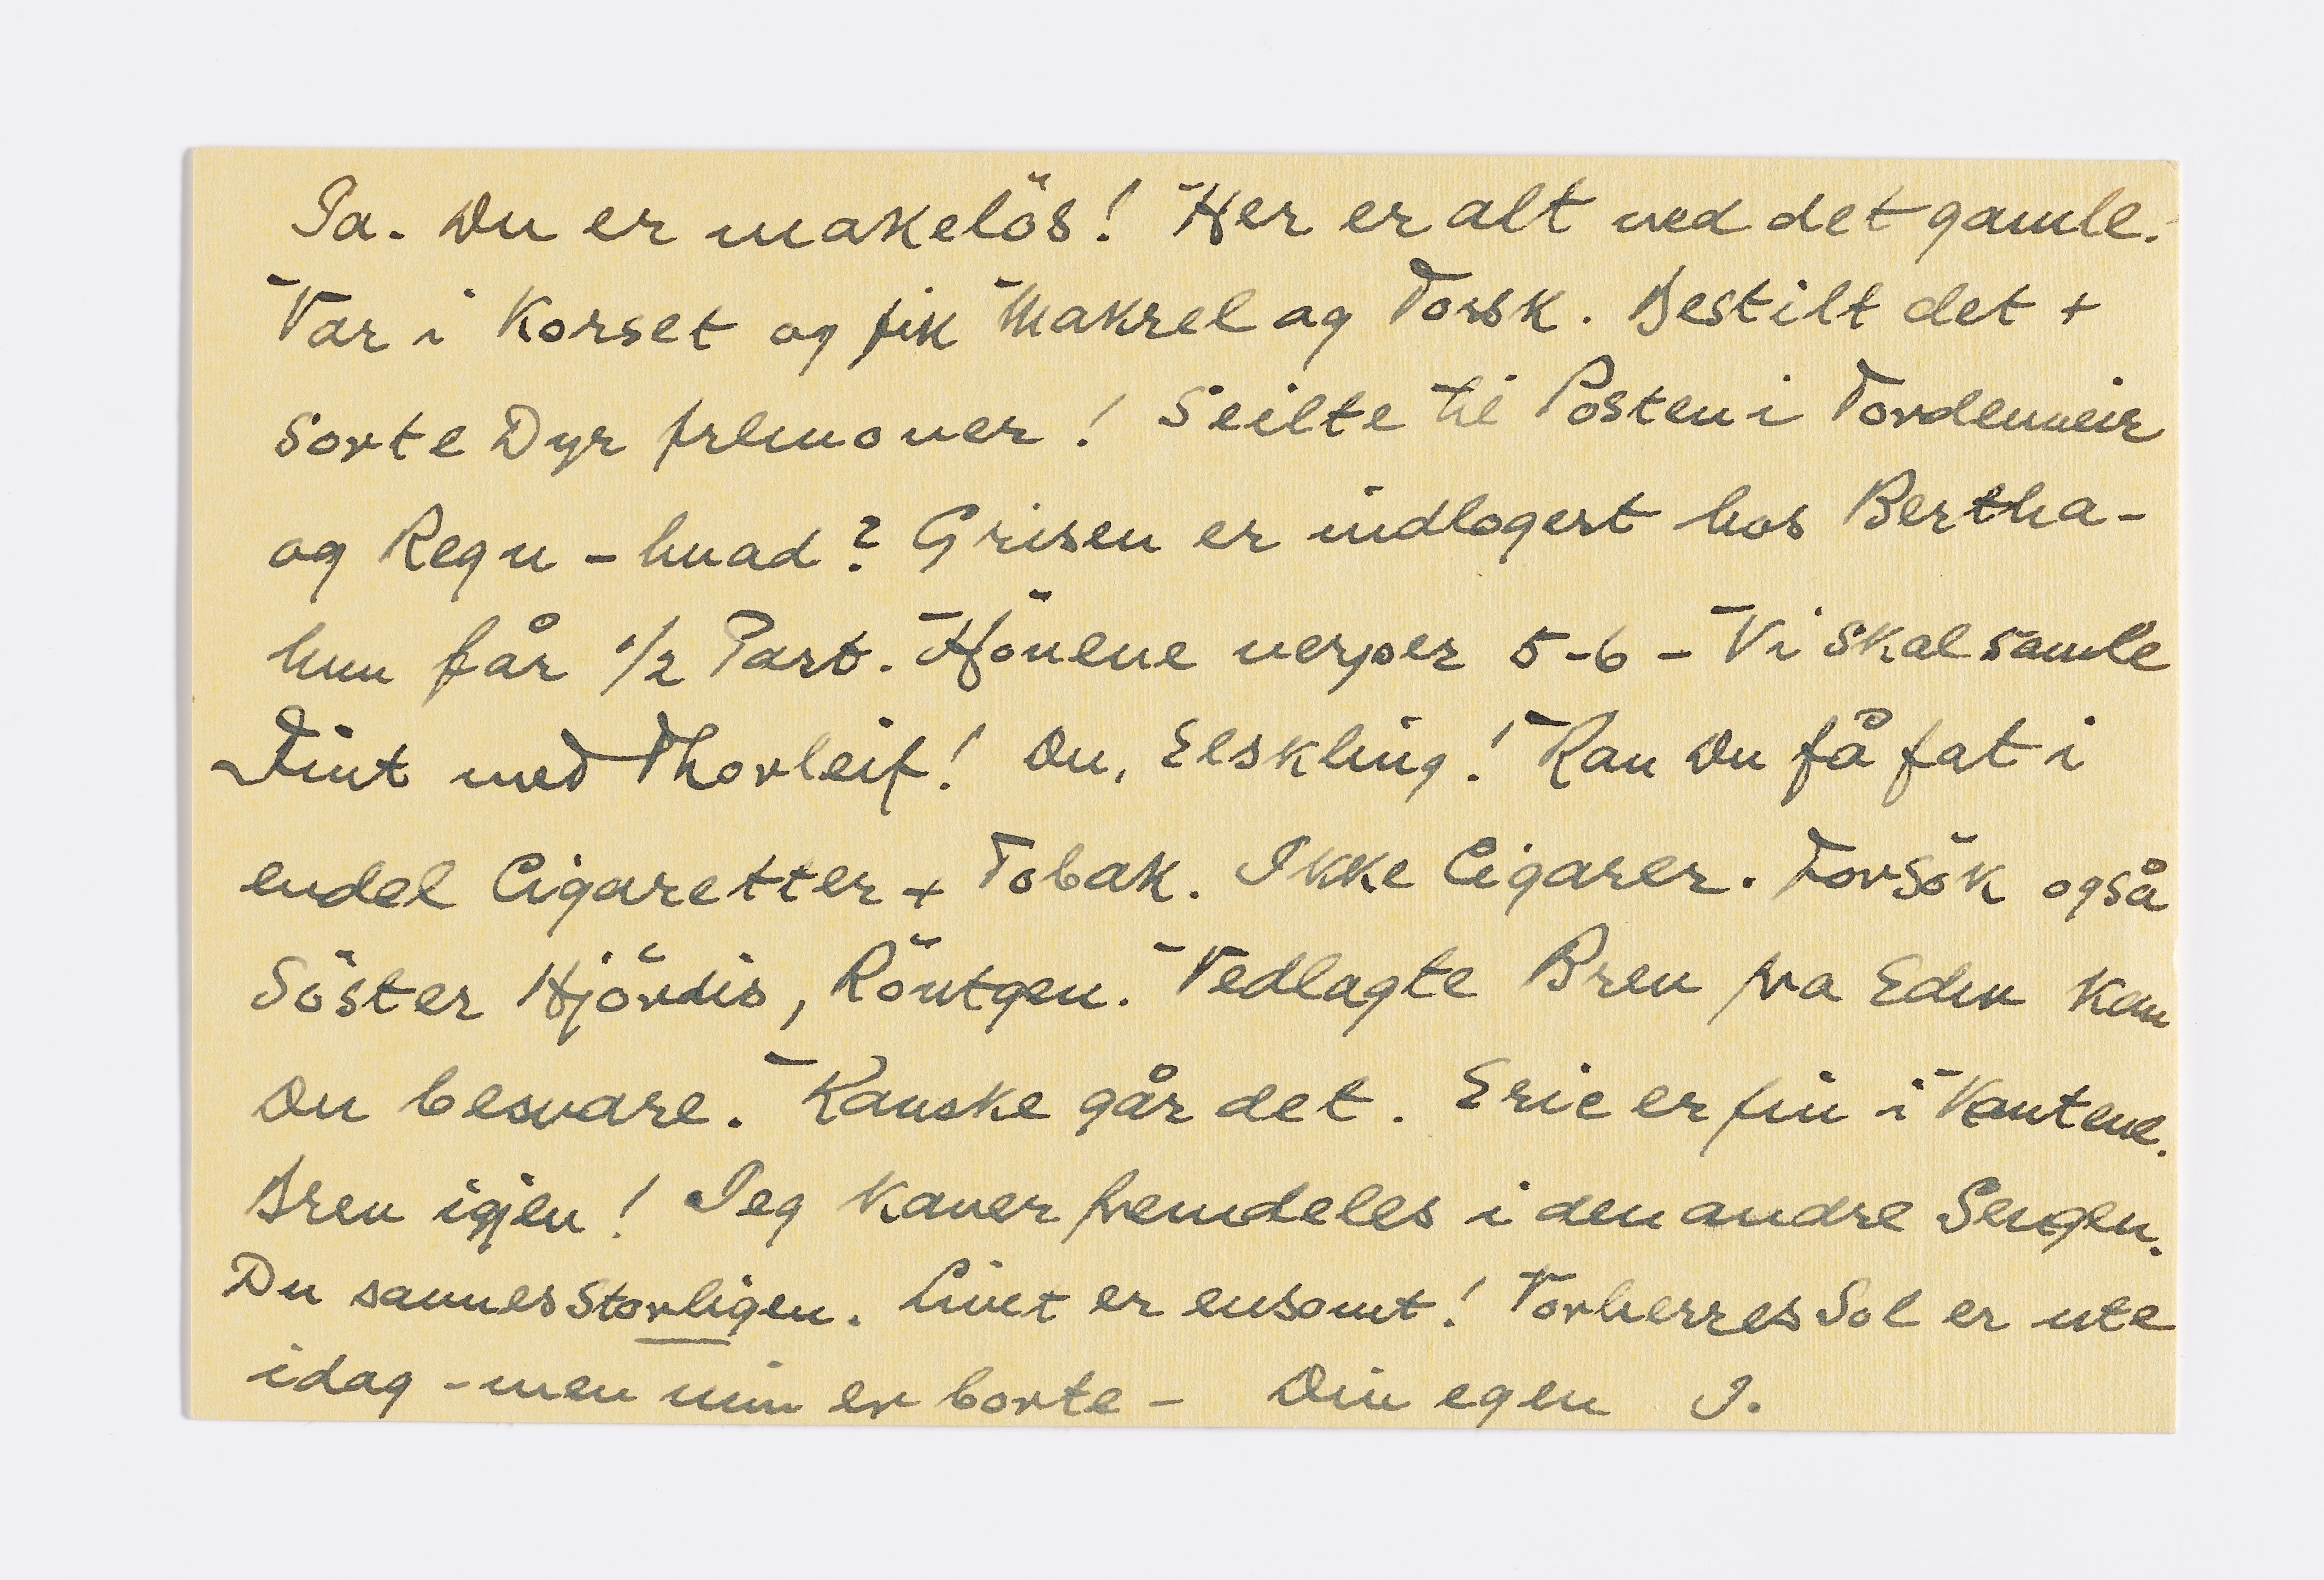 Ja. Du er makelös! Her er alt ved det gamle.
Var i Korset og fik Makrel og Torsk. Bestilt det +
sorte Dyr fremover! Seilte til Posten i Tordenveir
og Regn - hvad? Grisen er indlogert hos Bertha -
hun får 1/2 Part. Hönene verper 5-6 - Vi skal samle
Tint med Thorleif! Du, Elskling! Kan Du få fat i
endel Cigaretter + Tobak. Ikke Cigarer. Forsök også
Söster Hjördis, Röntgen. Vedlagte Brev fra Edev kan
Du besvare. Kanske går det. Eric er fin i Kantene.
Brev igjen! Jeg kaver fremdeles i den andre Sengen.
Du savnes storligen. Livet er ensomt! Vorherres Sol er ute
idag - men min er borte - Din egen J.